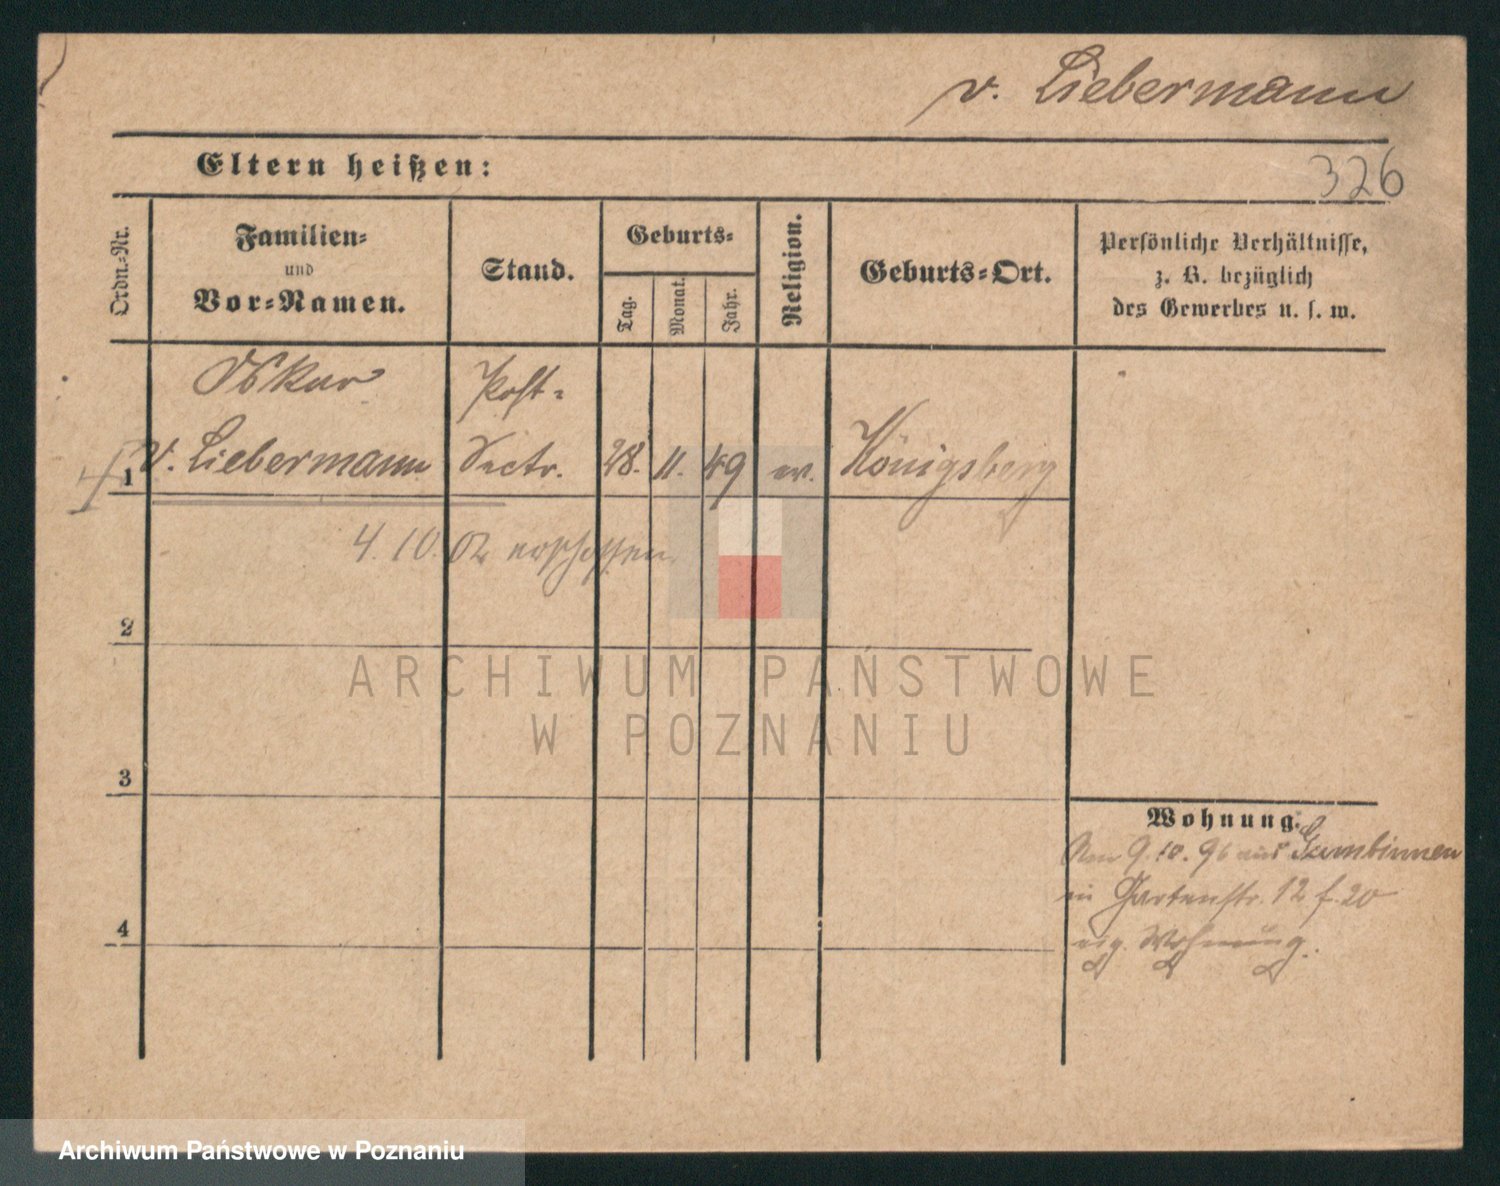 v. Liebermann
Eltern heißen:
326
Ordn.-Nr.
Familien-
und
Vor-Namen.
Stand.
Geburts-
Tag.
Monat.
Jahr.
Religion.
Geburts-Ort.
Persönliche Verhältnisse,
z. B. bezüglich
des Gewerbes u. s. w.
Oskar Post-
1 v. Liebermann Sectr. 28. 11. 49 ev. Königsberg
4. 10. 02 erschossen
2
ARCHIWUM PAŃSTWOWE
W POZNANIU
3
Wohnung.
Am 9. 10. 96 aus Gumbinnen
in Gartenstr. 12 f. 20
eig. Wohnung.
4
Archiwum Państwowe w Poznaniu